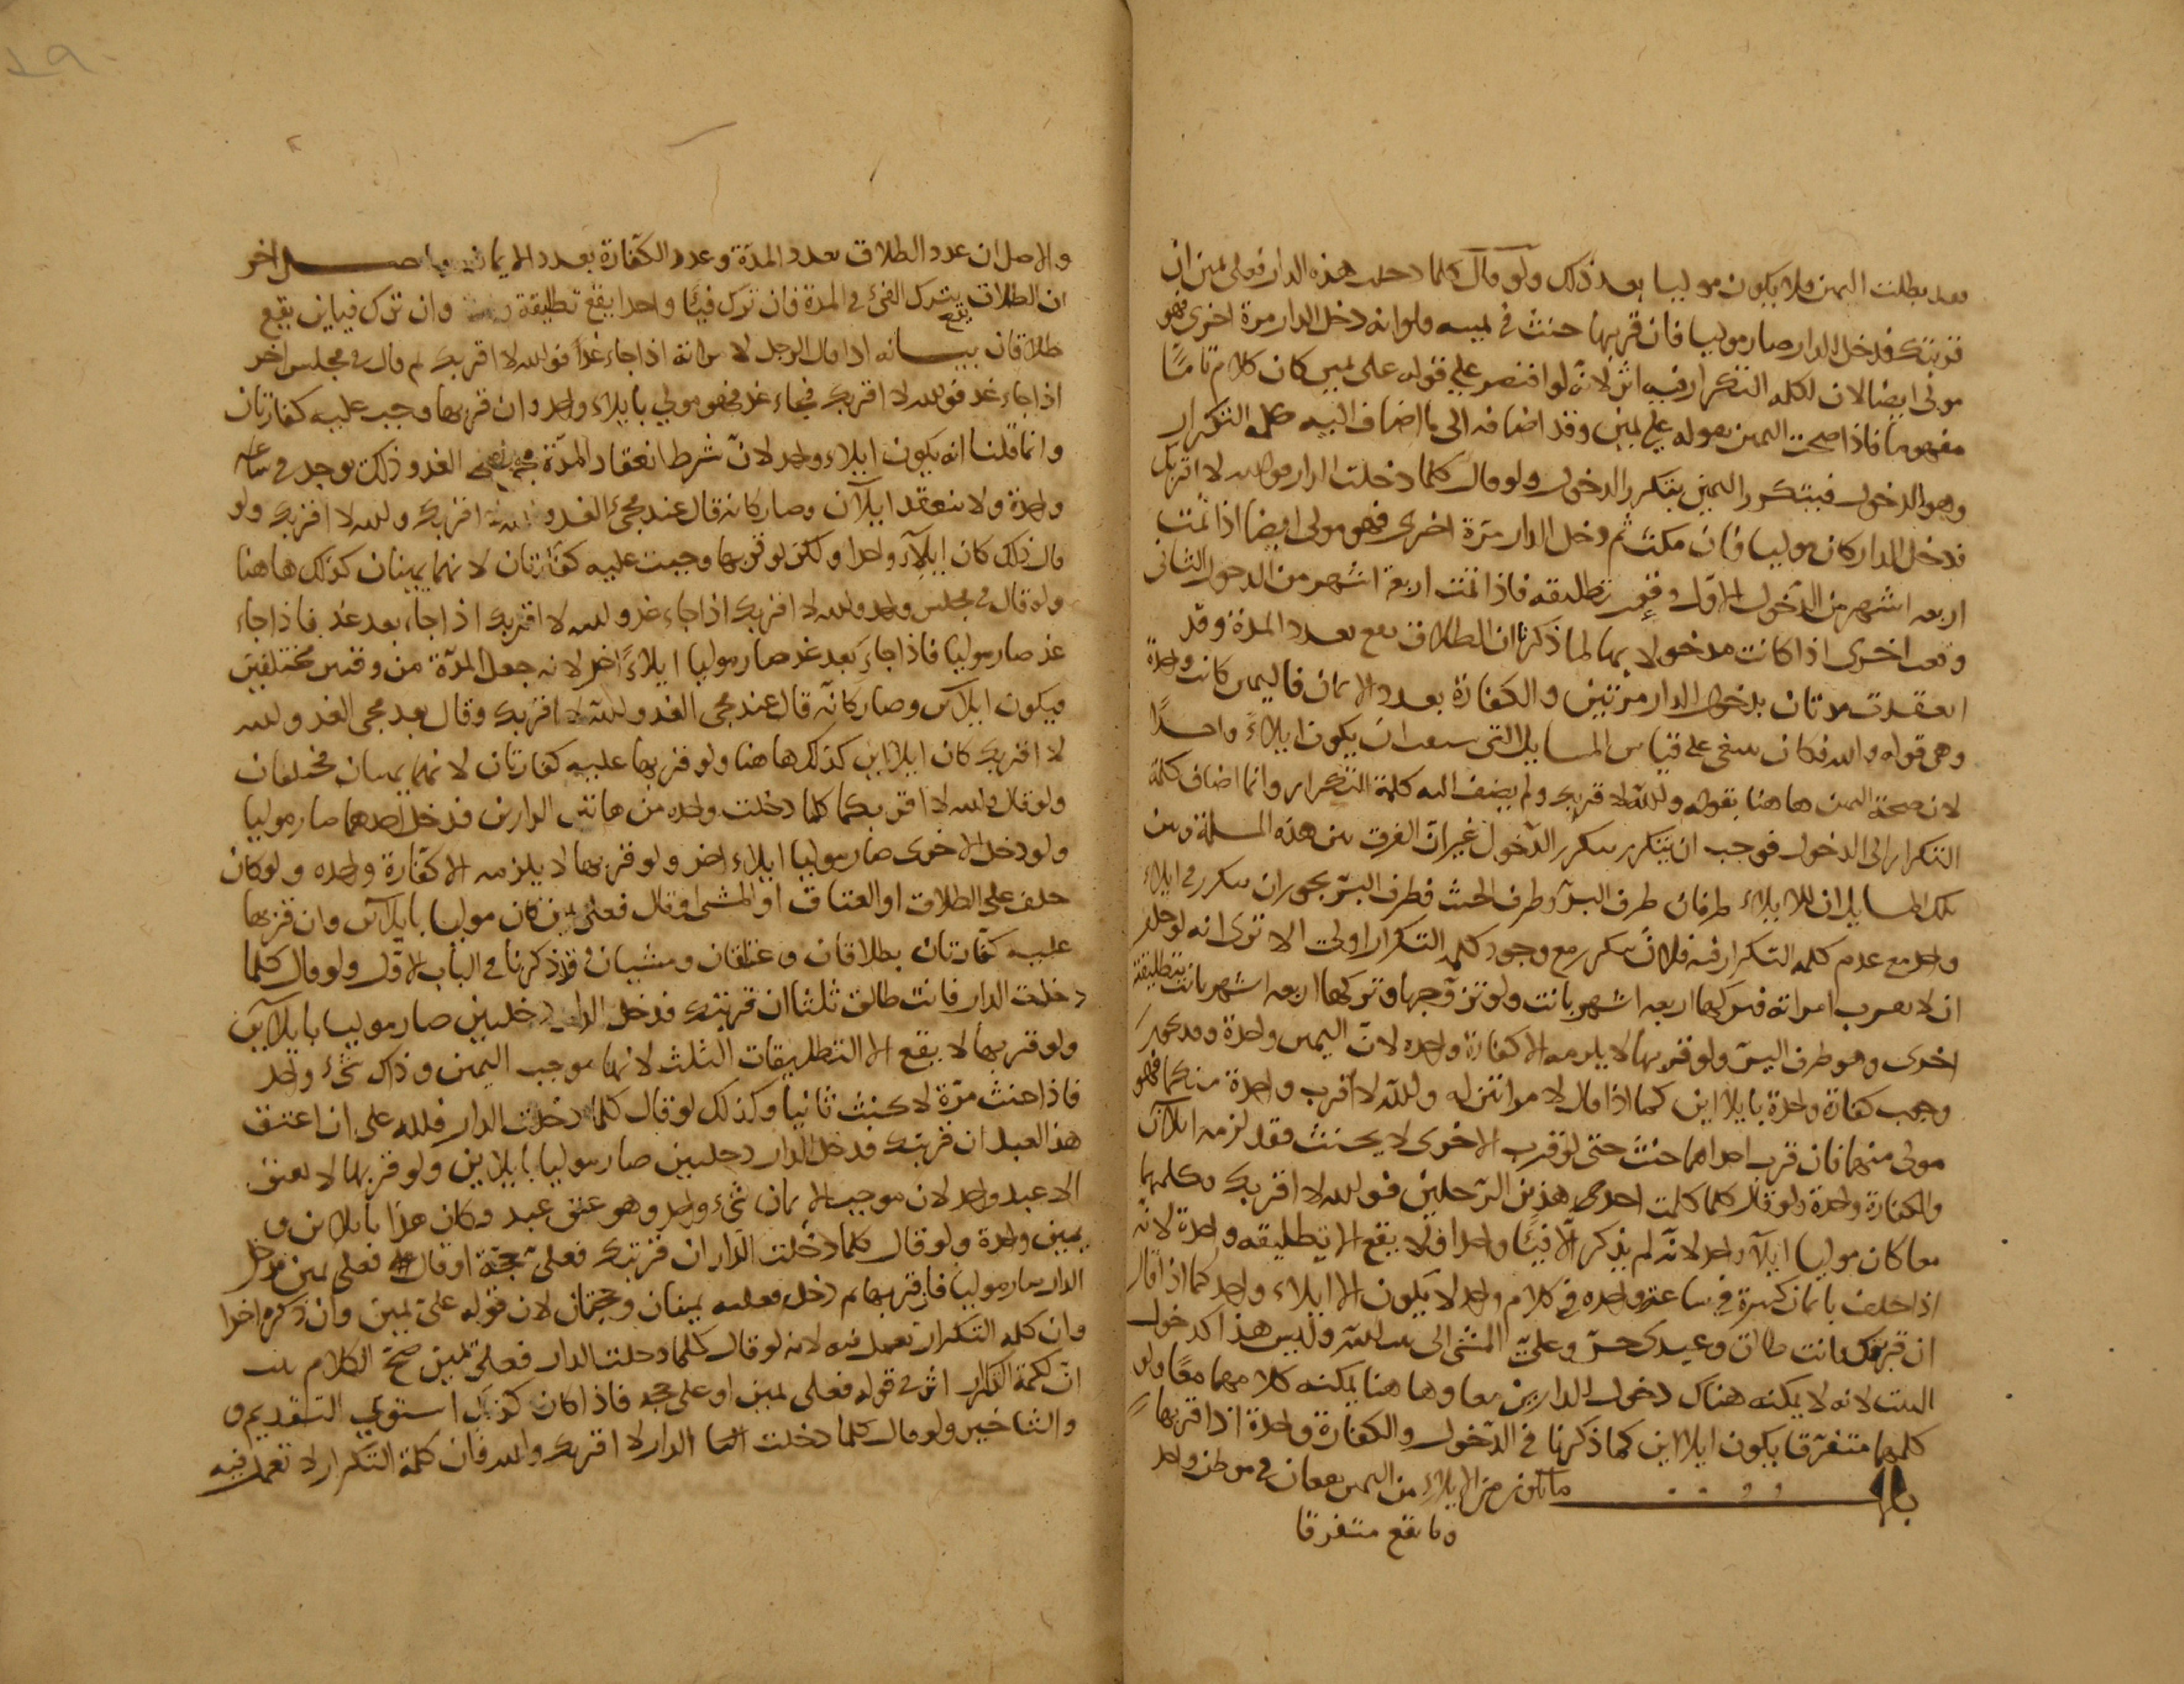 بعد بطلت اليمن فلا يكون موليا بعد ذلك ولو قال كلما دخلت هذه الدار فعلى يمين ان
قربتك فدخل الدار صار موليا فان قربها حنث في يمينه ولو انه دخل الدار مرة اخرى فهو
مولى ايضا لان لكلمه التكرار فيه اثر لانه لو اقتصر على قوله على يمين كان كلام تامًا
مفهوما فاذا صحت اليمين بقوله على يمين وقد اضافه الى ما اضاف اليه كلمه التكرار
وهو الدخول فيتكرر اليمين بتكرر الدخول ولو قال كلما دخلت الدار فوالله لا اقربك
فدخل الدار كان موليا فان مكث ثم دخل الدار مرة اخرى فهو مولى ايضا اذا تمت
اربعه اشهر من الدخول الاول وقع تطليقه فاذا تمت اربعة اشهر من الدخول الثانى
وقعت اخرى اذا كانت مدخولا بها لما ذكرنا ان الطلاق يقع بعدد المدة وقد
انعقدت مدتان بدخول الدار مرتين والكفارة بعدد الايمان فاليمين كانت واحدة
وهى قوله والله فكان ينبغى على قياس المسايل التى سبقت ان يكون ايلاءً واحدًا
لان صحة اليمين هاهنا بقوله والله لا اقربك ولم يضف اليه كلمة التكرار وانما اضاف كلمة
التكرار الى الدخول فوجب ان يتكرر بتكرر الدخول غير ان الفرق بين هذه المسلة وبين
تلك المسايل ان للايلاء طرفان طرف البر وطرف الحنث فطرف البر يجوز ان يتكرر في ايلاء
واحد مع عدم كلمه التكرار فيه فلان يتكرر مع وجود كلمه التكرار اولى الا ترى انه لو حلف
ان لا يقرب امراته فتركها اربعه اشهر بانت ولو تزوجها وتركها اربعه اشهر بانت بتطليقة
اخرى وهو طرف البر ولو قربها لا يلزمه الا كفارة واحده لان اليمين واحدة وقد يجوز
وجوب كفارة واحدة بايلااين كما اذا قال لامراتين له والله لا اقرب واحدة منكما فهو
مولى منهما فان قرب احداهما حنث حتى لو قرب الاخرى لا يحنث فقد لزمه ايلاان
والكفارة واحدة ولو قال كلما كلمت احد هذين الرجلين فوالله لا اقربك فكلمهما
معا كان موليا ايلاء واحد لانه لم يذكر الا فيئًا واحدا فلا يقع الا تطليقه واحدة لانه
اذا حلف بايمان كثيرة في ساعة واحده في كلام واحد لا يكون الا ايلاء واحد كما اذا قال
ان قربتك فانت طالق وعبدى حر وعليّ المشى الى بيت الله وليس هذا كدخول
البيت لانه لا يمكنه هناك دخول الدارين معا وهاهنا يمكنه كلامهما معًا ولو
كلمهما متفرقا يكون ايلااين كما ذكرنا في الدخول والكفارة واحدة اذا قربها
باب ما يكون من الايلاء من اليمين يقعان في موطن واحد
وما يقع متفرقا
والاصل ان عدد الطلاق بعدد المدة وعدد الكفارة بعدد الايمان واصل اخر
ان الطلاق يقع بترك الفئ في المدة فان ترك فيئًا واحدا يقع تطليقة وان ترك فياين يقع
طلاقان بيانه اذا قال الرجل لامراته اذا جاء غدًا فوالله لا اقربك ثم قال في مجلس اخر
اذا جاء غد فوالله لا اقربك فجاء غد فهو مولي بايلاء واحد وان قربها وجب عليه كفارتان
وانما قلنا انه يكون ايلاء واحد لان شرط انعقاد المدة مجئ الغد وذلك يوجد في ساعه
واحدة ولا ينعقد ايلاان وصار كانه قال عند مجئ الغد والله لا اقربك والله لا اقربك ولو
قال ذلك كان ايلاء واحدا ولكن لو قربها وجبت عليه كفارتان لانهما يمينان كذلك هاهنا
ولو قال في مجلس واحد والله لا اقربك اذا جاء غد والله لا اقربك اذا جاء بعد غد فاذا جاء
غد صار موليا فاذا جاء بعد غد صار موليا ايلاءً اخر لانه جعل المدة من وقتين مختلفين
فيكون ايلاآن وصار كانه قال عند مجى الغد والله لا اقربك وقال بعد مجى الغد والله
لا اقربك كان ايلااين كذلك هاهنا ولو قربها عليه كفارتان لانهما يمينان مختلفان
ولو قال والله لا اقربكما كلما دخلت واحده من هاتين الدارين فدخل احدهما صار موليا
ولو دخل الاخرى صار موليا ايلاء اخر ولو قربها لا يلزمه الا كفارة واحده ولو كان
حلف على الطلاق او العتاق او المشى او قال فعلى يمين كان موليا بايلاآن وان قربها
عليه كفارتان بطلاقان وعتاقان ومشيان وقد ذكرنا في الباب الاول ولو قال كلما
دخلت الدار فانت طالق ثلثا ان قربتك فدخل الدار دخلتين صار موليا بايلاآين
ولو قربها لا يقع الا التطليقات الثلث لانها موجب اليمين وذلك شئ واحد
فاذا حنث مرة لا يحنث ثانيا وكذلك لو قال كلما دخلت الدار فلله على ان اعتق
هذا العبد ان قربتك فدخل الدار دخلتين صار موليا بايلاين ولو قربها لا يعتق
الا عبد واحد لان موجب الايمان شئ واحد وهو عتق عبد وكان هذا بايلاين و
يمين واحدة ولو قال كلما دخلت الدار ان قربتك فعلى حجة او قال فعلى يمين فدخل
الدار صار موليا فان قربها ثم دخل فعليه يمينان وحجتان لان قوله على يمين وان ذكره اخرا
وان كلمه التكرار تعمل فيه لانه لو قال كلما دخلت الدار فعلى يمين صح الكلام
ان لكلمة التكرار اثر في قوله فعلى يمين او على حجه فاذا كان كذلك استوى التقديم و
والتاخير ولو قال كلما دخلت الدار لا اقربك والله فان كلمة التكرار لا تعمل فيه